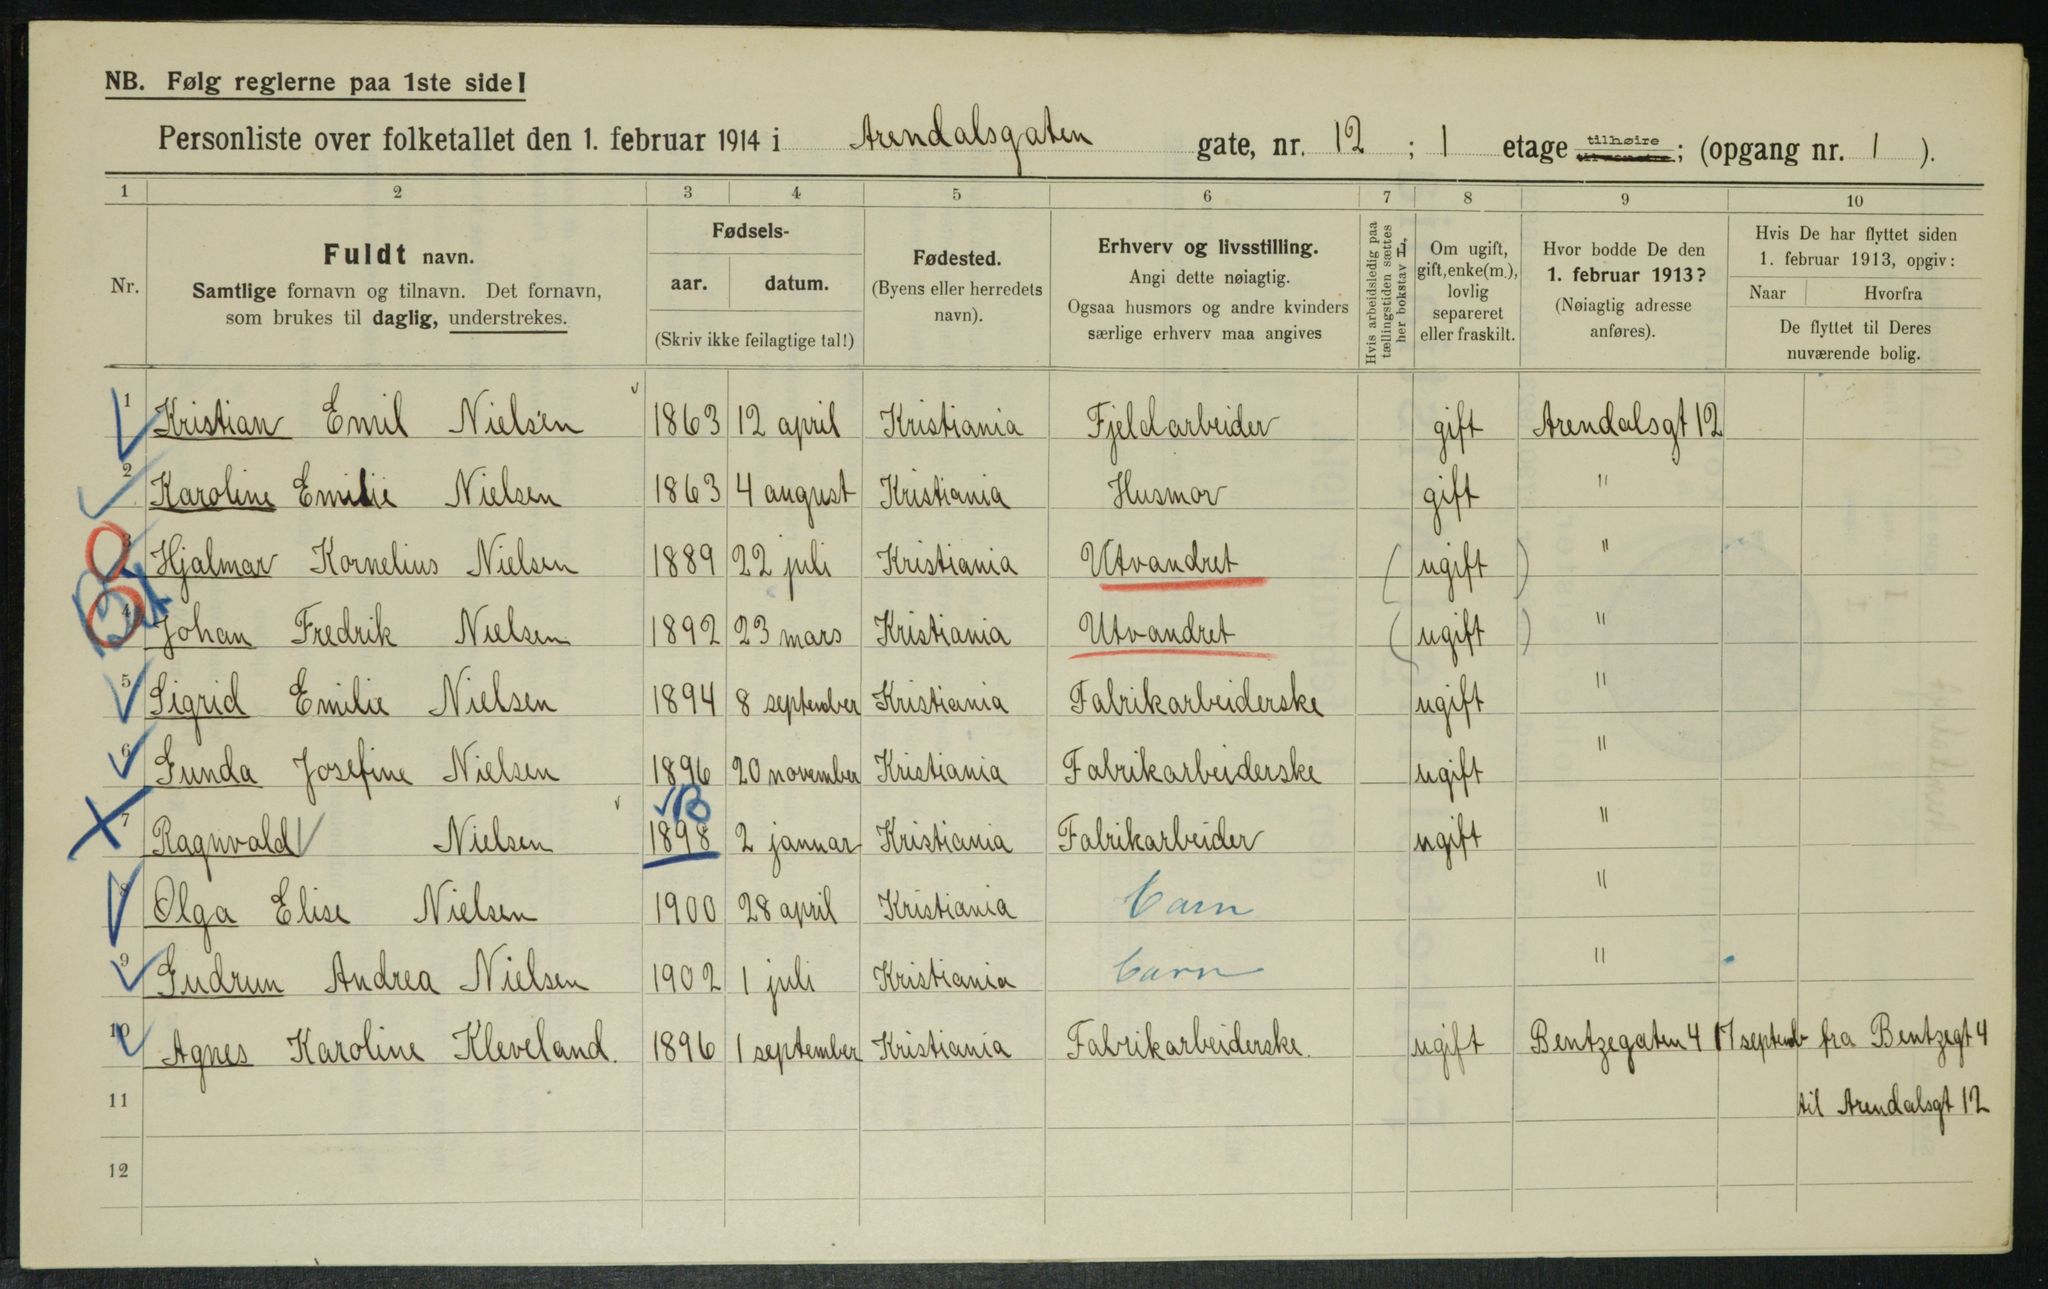 NB. Følg reglerne paa 1ste side!
Personliste over folketallet den 1. februar 1914 i Arendalsgaten gate, nr. 12 ; 1 etage tilhøire; (opgang nr. 1 ).
1 2 3 4 5 6 7 8 9 10
Nr.
Fuldt navn.
Samtlige fornavn og tilnavn. Det fornavn,
som brukes til daglig, understrekes.
Fødsels-
aar. datum.
(Skriv ikke feilagtige tal!)
Fødested.
(Byens eller herredets
navn).
Erhverv og livsstilling.
Angi dette nøiagtig.
Ogsaa husmors og andre kvinders
særlige erhverv maa angives
Hvis arbeidsledig paa
tællingstiden sættes
her bokstav L.
Om ugift,
gift, enke(m.),
lovlig
separeret
eller fraskilt.
Hvor bodde De den
1. februar 1913?
(Nøiagtig adresse
anføres).
Hvis De har flyttet siden
1. februar 1913, opgiv:
Naar Hvorfra
De flyttet til Deres
nuværende bolig.
1 Kristian Emil Nielsen 1863 12 april Kristiania Fjeldarbeider gift Arendalsgt 12
2 Karoline Emilie Nielsen 1863 4 august Kristiania Husmor gift "
3 Hjalmar Kornelius Nielsen 1889 22 juli Kristiania Utvandret (ugift) "
4 Johan Fredrik Nielsen 1892 23 mars Kristiania Utvandret (ugift) "
5 Sigrid Emilie Nielsen 1894 8 september Kristiania Fabrikarbeiderske ugift "
6 Gunda Josefine Nielsen 1896 20 november Kristiania Fabrikarbeiderske ugift "
7 Ragnvald Nielsen 1898 2 januar Kristiania Fabrikarbeider ugift "
8 Olga Elise Nielsen 1900 28 april Kristiania barn "
9 Gudrun Andrea Nielsen 1902 1 juli Kristiania barn "
10 Agnes Karoline Kleveland. 1896 1 september Kristiania Fabrikarbeiderske. ugift Bentzegaten 4 17 septemb fra Bentzegt 4
11 til Arendalsgt 12
12